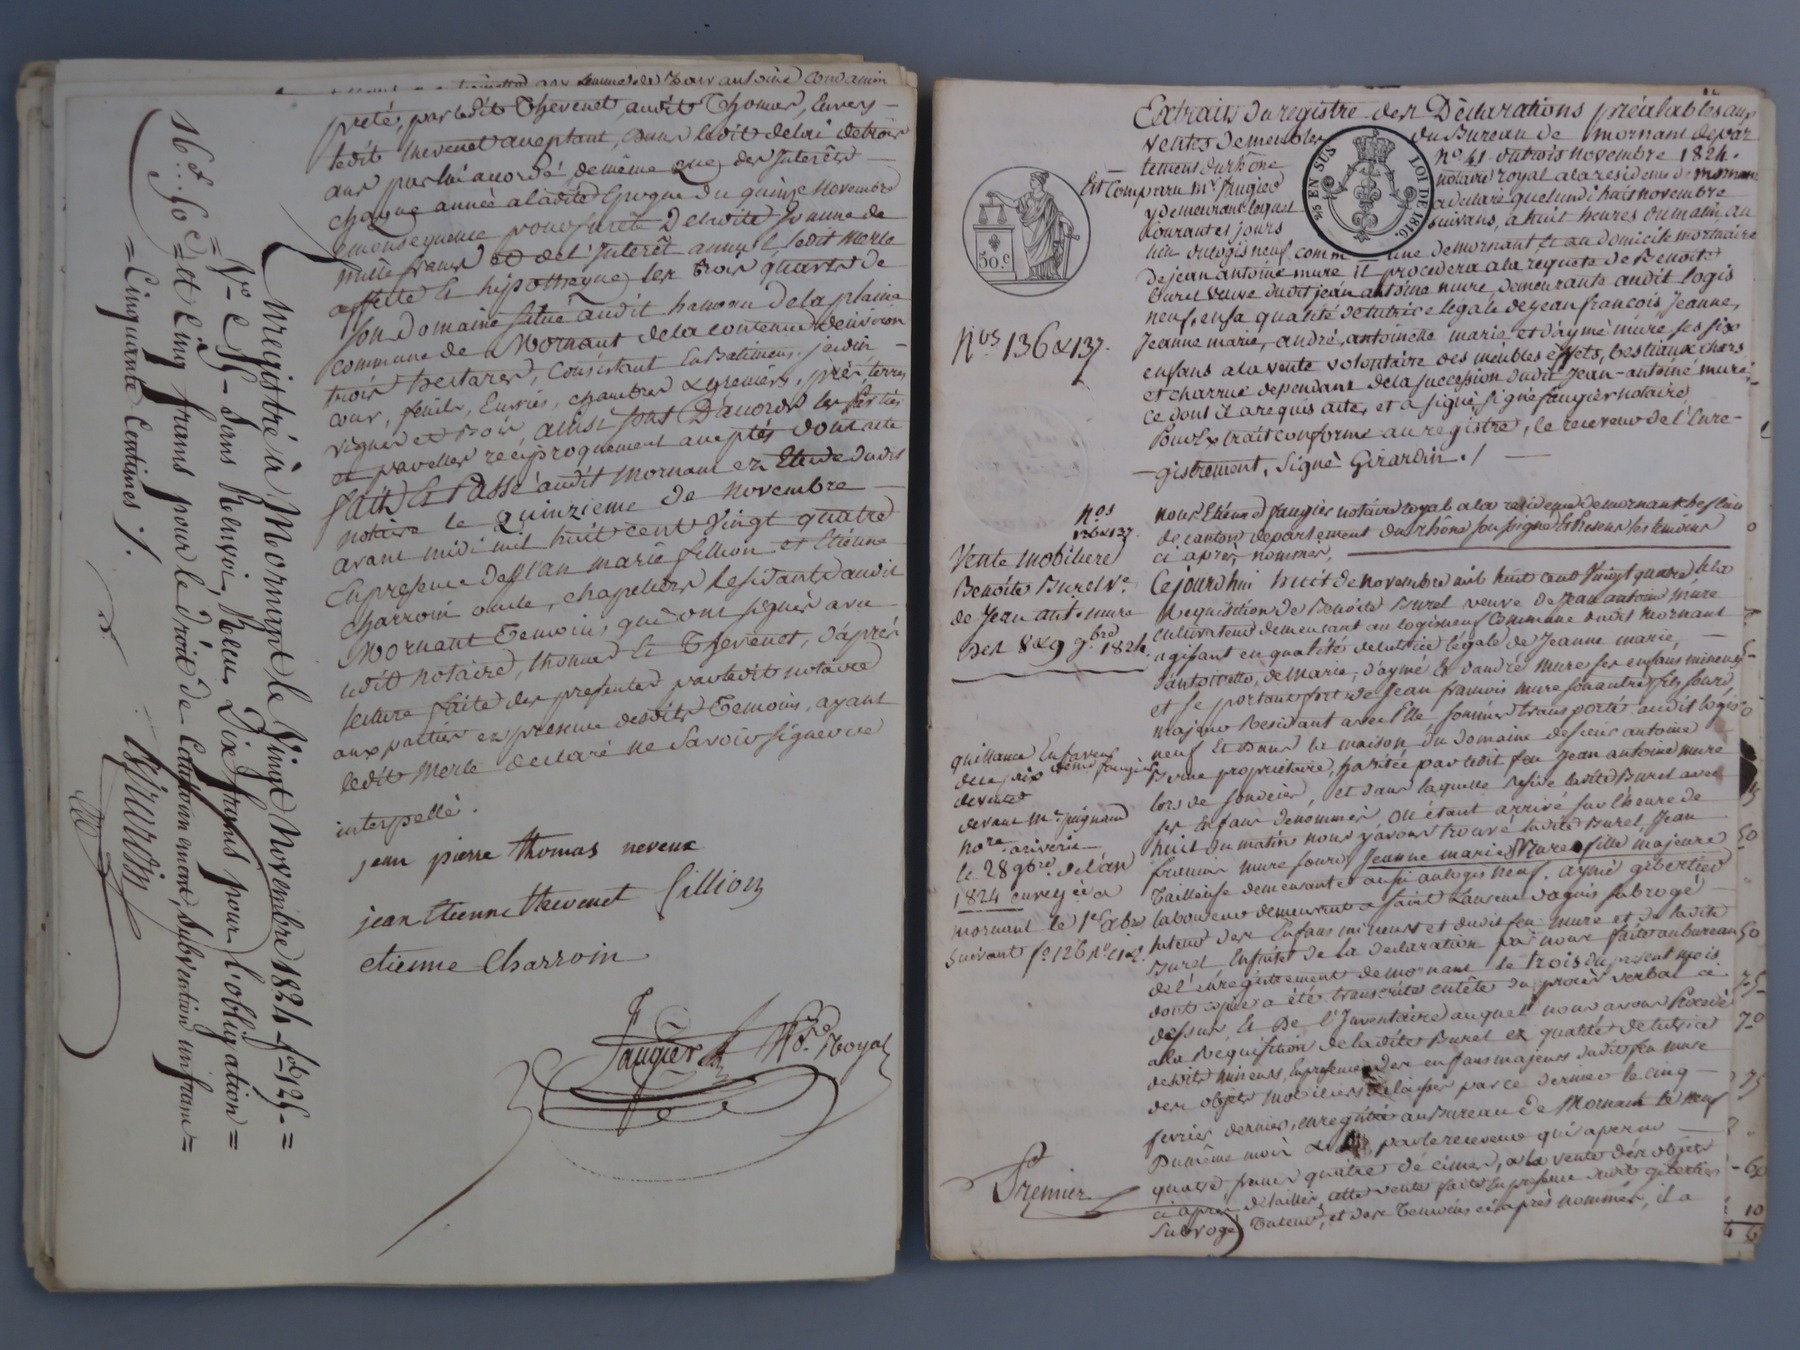 prêté, par ledit Thevenet, audit Thomas, Envers
ledit thevenet acceptant, dans ledit delai de trois
ans par lui accordé, de même que des Interêts
chaque année a ladite Epoque du quinze novembre
Conséquence pour sureté De ladite Somme de
mille francs et de l'Interêt annuel ledit Merle
affecte & hipotheque les trois quarts de
son Domaine situé audit hameau De la plaine
commune de Mornant de la contenue d'environ
trois hectares, Consistant En Batimens, jardin
cour, fenils, Ecuries, chambres & greniers, prés, terres
vignes et Bois, ainsi sont D'accord les Parties
et par elles reciproquement acceptés dont acte
fait & Passé audit Mornant en Etude dudit
notaire le Quinzieme de Novembre
avant midi mil huit cent vingt quatre
En presence de jean marie fillion et Etienne
Charroin oncle, chapeliers Residants audit
Mornant Temoins, qui ont signés avec
ledit notaire, thomas & Thevenet, D'après
lecture faite des presentes par ledit notaire
aux parties en presence desdits Temoins, ayant
ledit Merle declaré ne Savoir signer de ce
interpellé.
jean pierre thomas neveux
jean Etienne thevenet fillion
etienne Charroin
Faugier Nre Royal
Enregistré à Mornant le Vingt Novembre 1824 fo 125.=
Vo C - Sans Renvoi, Reçu Dix francs pour l'obligation =
= et Cinq francs pour le Droit de Cautionnement, Subvention un franc =
= Cinquante Centimes ./.
16f. 50c =
Girardin
Extrait du registre des Déclarations préalables aux
ventes de meubles du Bureau de mornant depar
tement du rhône no. 41 du trois novembre 1824.
Est Comparu Mr. faugier notaire royal a la residence de mornant
y demeurant lequel a declaré que lundi huit novembre
Courant et jours suivans, a huit heures du matin, au
lieu du logis neuf commune de mornant Et au domicile mortuaire
de jean antoine mure il procedera a la requete de Benoite
Burel veuve dudit jean antoine mure demeurante audit logis
neuf, en sa qualité de tutrice legale de jean francois Jeanne,
Jeanne marie, andré, antoinette marie, et d'aymé mure ses six
enfans a la vente volontaire des meubles effets, bestiaux chars
et charrue dependans de la succession dudit Jean-antoine mure,
ce dont il a requis acte, et a signé signé faugier notaire,
Pour Extrait conforme au registre, le receveur de l'Enre-
gistrement, Signé Girardin ./
5 % EN SUS
LOI DE 1816.
50.c
Nos 136 & 137.
nos
136 & 137.
Vente Mobiliere
Benoite Burel ve.
de Jean ant. mure
Des 8 & 9 9bre. 1824.
nous Etienne faugier notaire royal a la residence de mornant chef lieu
de canton departement du Rhône soussigné En presence des temoins
ci après nommés,
Cejourdhui huit de novembre mil huit cent Vingt quatre a la
Requisition de Benoite Burel veuve de Jean antoine Mure
cultivateur demeurant au logis neuf Commune dudit Mornant
agissant en qualité de tutrice légale de Jeanne marie,
d'antoinette, de Marie, d'aymé Et d'andré mure ses enfans mineurs
et se portant fort de Jean francois mure son autre fils sourd,
majeur Residant avec Elle sommes transportés audit logis
neuf Et Dans la maison du domaine de sieur antoine
propriétaire, habitée par ledit feu Jean antoine mure
lors de son déces, et dans laquelle reside ladite Burel avec
ses Enfans denommés, Où étant arrivé sur l'heure de
huit du matin nous y avons trouvé ladite Burel, Jean
francois mure sourd, Jeanne marie Mure fille majeure
Tailleuse demeurante aussi au logis neuf. aymé gibertier
laboureur demeurant a saint Laurent dagnis subrogé
tuteur des Enfans mineurs et dudit feu mure et de ladite
Burel Ensuite de la declaration par nous faite au bureau
de l'enregistrement de mornant le trois du present mois
dont copie a été transcrite en tête du procès verbal ci
dessus & De l'Inventaire auquel nous avons Procédé
a la Réquisition de la dite Burel en qualité de tutrice
desdits mineurs, En presence des enfans majeurs dudit feu mure
des objets mobiliers délaissés par ce dernier le cinq
fevrier dernier, enregistré au Bureau de Mornant le neuf
Du même mois par le receveur qui a perçu
quatre francs quatre decimes, a la vente des objets
ci après detaillés, cette vente faite En presence dudit gibertier
Subrogé Tuteur, et des Temoins ci après nommés, il a
quittance En faveur
de Mr. faugier
devant Mr.
nore. a riverie
le 28 9bre. de l'an
1824 enregistré a
mornant le 1er Xbre
suivant fo. 126
Premier